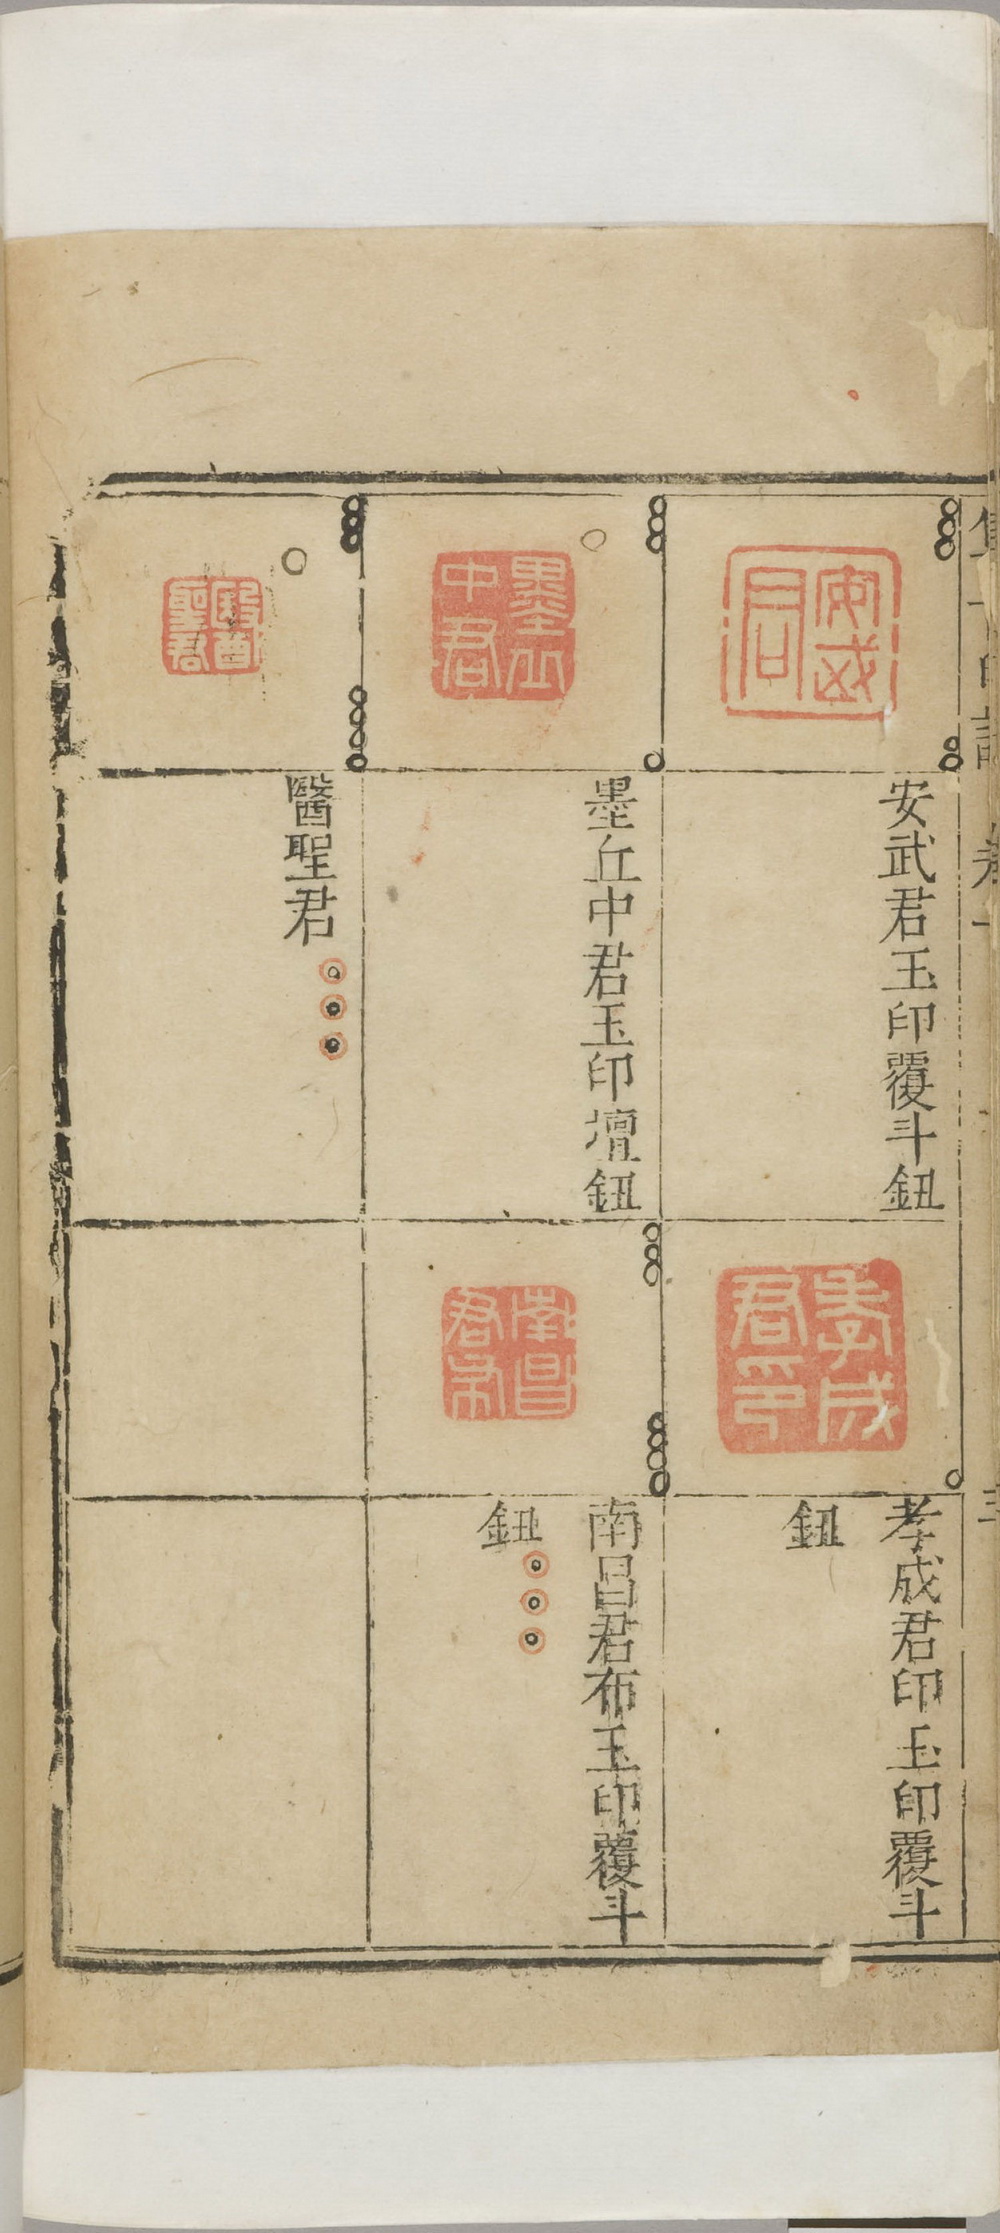 安武君
安武君玉印覆斗鈕
孝成君印
孝成君印玉印覆斗
鈕
墨丘中君
墨丘中君玉印壇鈕
南昌君布
南昌君布玉印覆斗
鈕
醫聖君
醫聖君